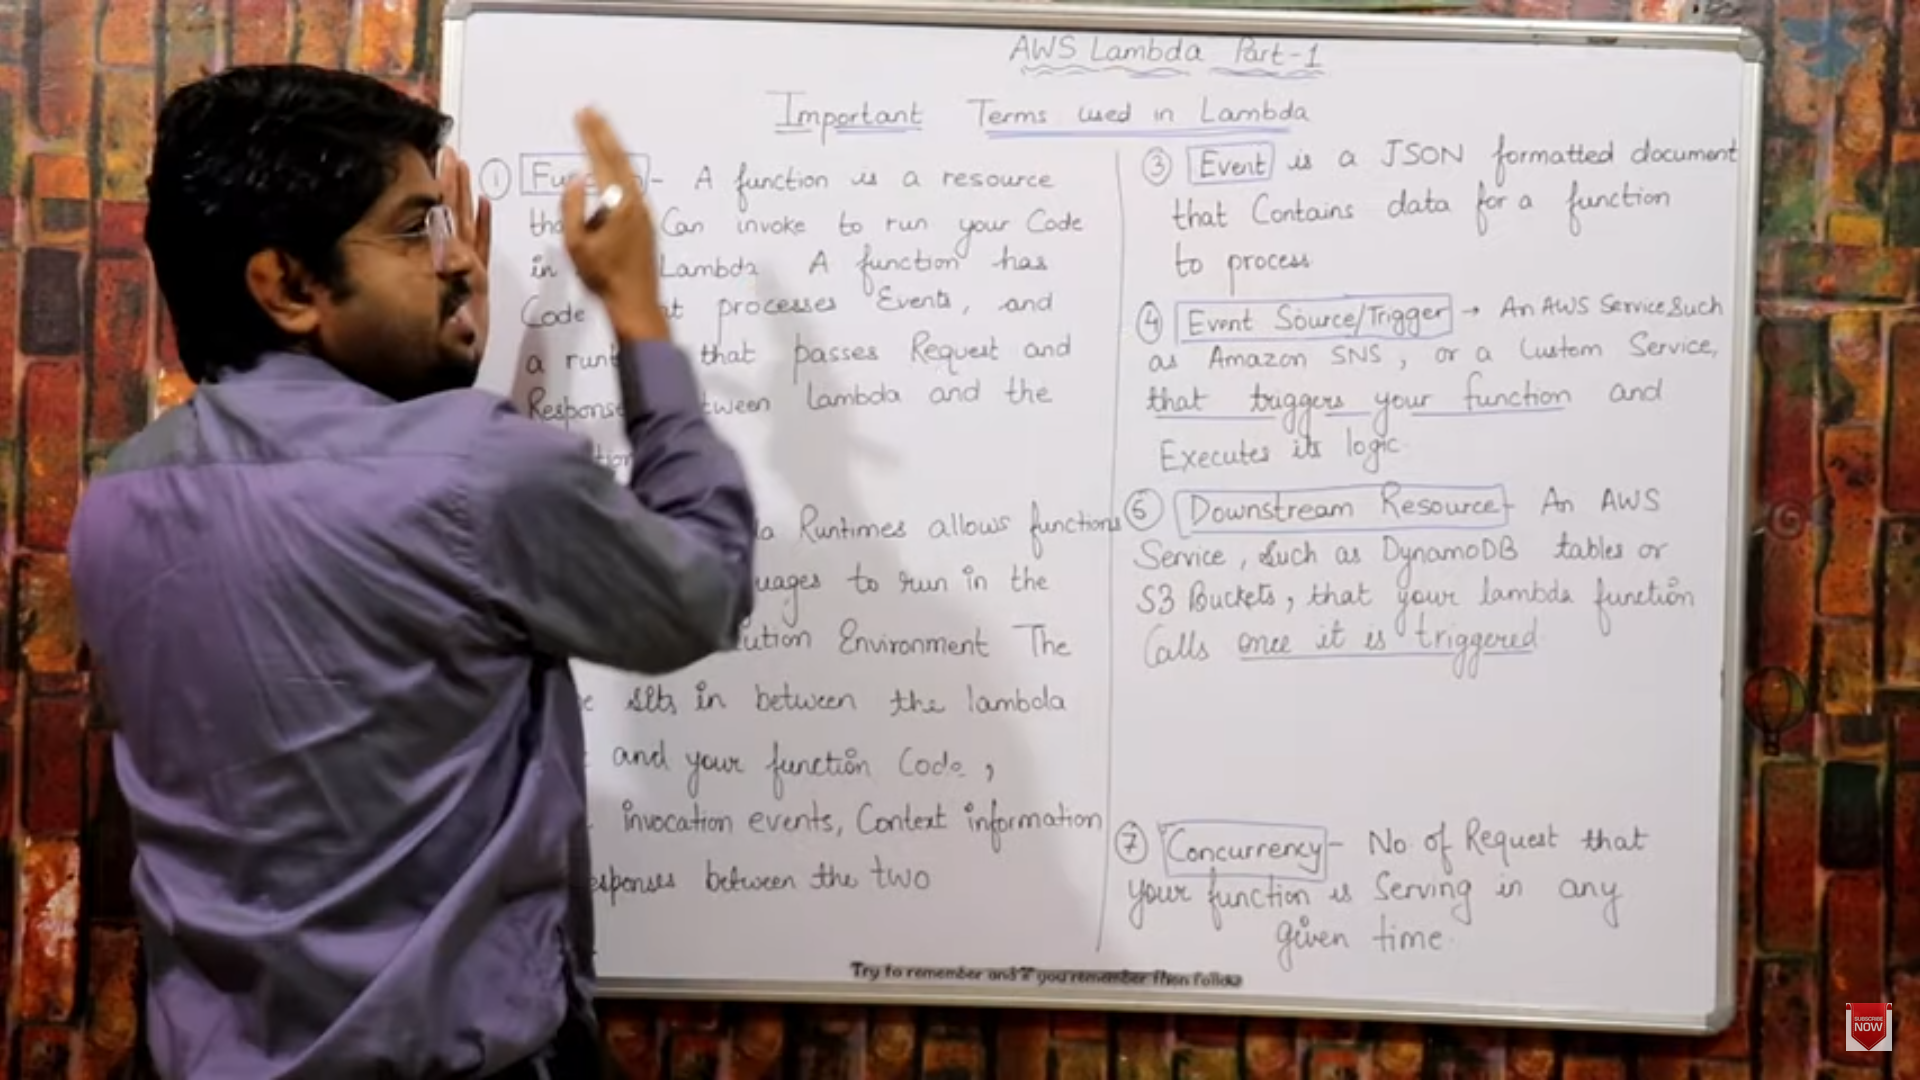 AWS Lambda Part-1
Important Terms used in Lambda
① - A function is a resource
Can invoke to run your Code
in Lambda A function has
Code processes Events, and
a that passes Request and
Lambda and the
Runtimes allows functions
to run in the
Environment The
sits in between the lambda
and your function Code,
invocation events, Context information
between the two
③ Event is a JSON formatted document
that Contains data for a function
to process
④ Event Source/Trigger → An AWS Service Such
as Amazon SNS, or a Custom Service,
that triggers your function and
Executes its logic.
Downstream Resource - An AWS
Service, such as DynamoDB tables or
S3 Buckets, that your lambda function
Calls once it is triggered
⑦ Concurrency - No of Request that
your function is Serving in any
given time.
Try to remember and if you remember then follow
SUBSCRIBE
NOW